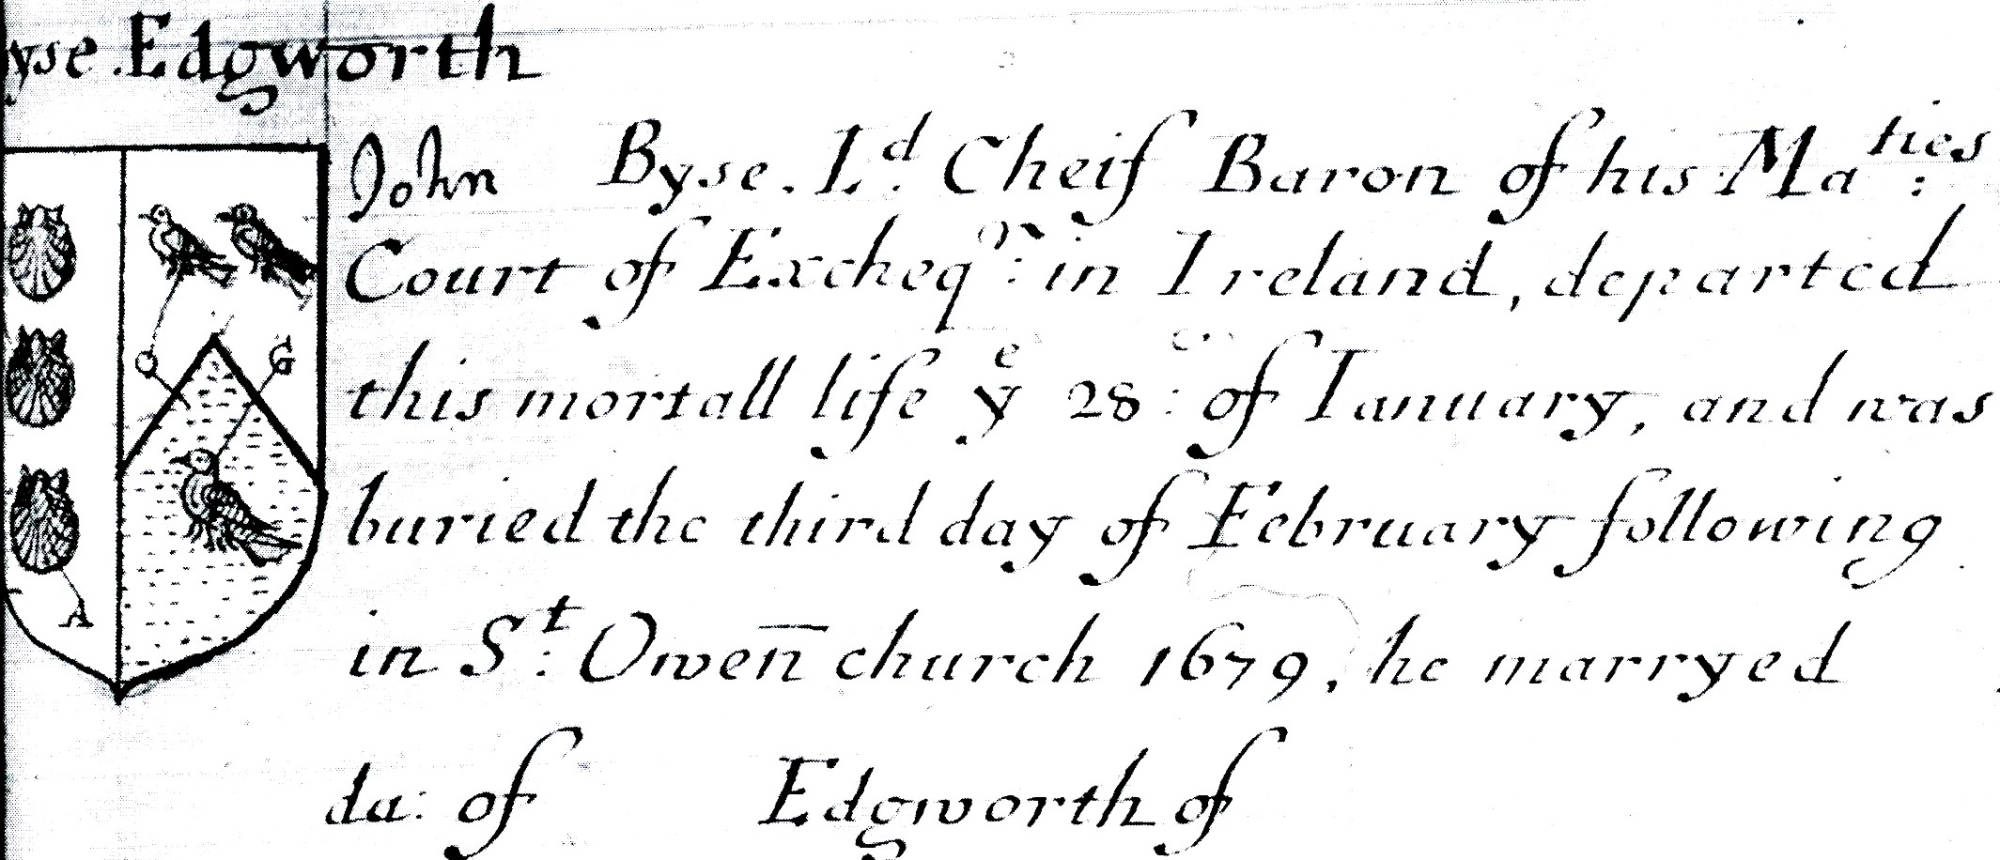 yse Edgworth
John Byse. L.d Cheif Baron of his Ma:ties
Court of Excheq:r in Ireland, departed
this mortall life ye 28: of Ianuary, and was
buried the third day of February following
in S:t Owen̅ church 1679, he marryed
da: of Edgworth of
O G
A